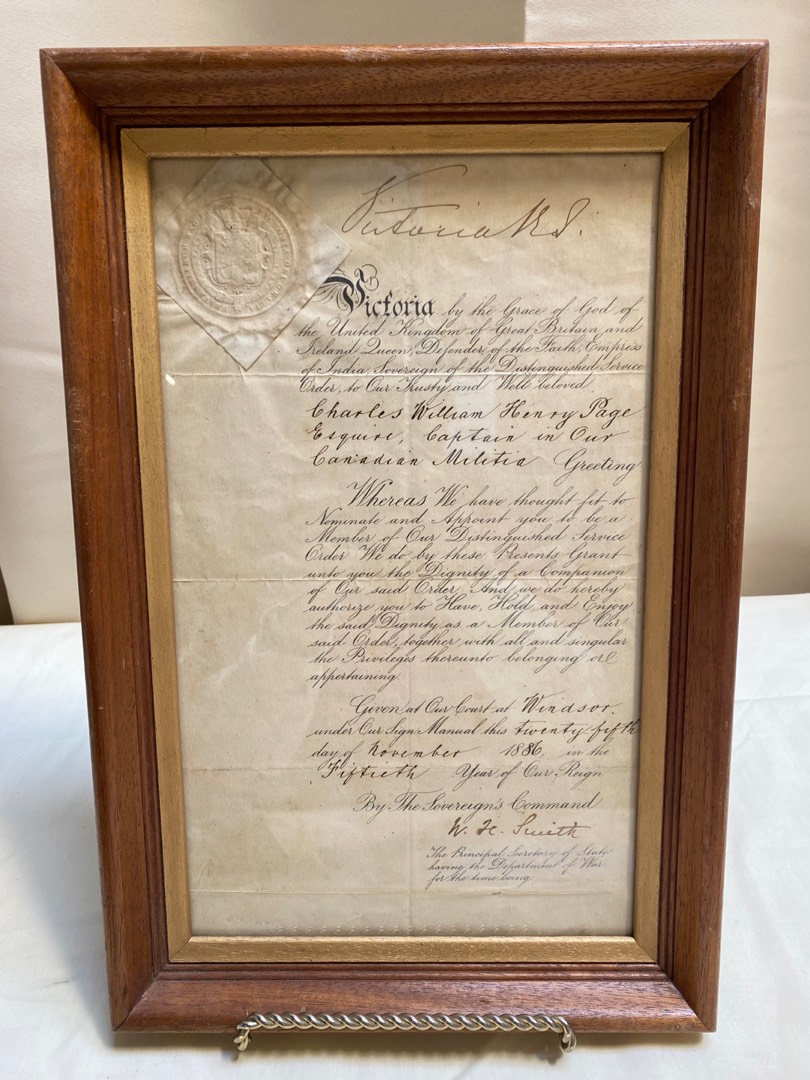 Victoria R.I.
Victoria by the Grace of God of
the United Kingdom of Great Britain and
Ireland Queen, Defender of the Faith, Empress
of India, Sovereign of the Distinguished Service
Order, to Our Trusty and Well beloved
Charles William Henry Page
Esquire, Captain in Our
Canadian Militia Greeting
Whereas We have thought fit to
Nominate and Appoint you to be a
Member of Our Distinguished Service
Order We do by these Presents Grant
unto you the Dignity of a Companion
of Our said Order And we do hereby
authorize you to Have, Hold, and Enjoy
the said Dignity as a Member of Our
said Order, together with all and singular
the Privileges thereunto belonging or
appertaining.
Given at Our Court at Windsor.
under Our Sign Manual this twenty fifth
day of November 1886. in the
Fiftieth Year of Our Reign
By The Sovereign's Command
W. H. Smith
The Principal Secretary of State
having the Department of War
for the time being